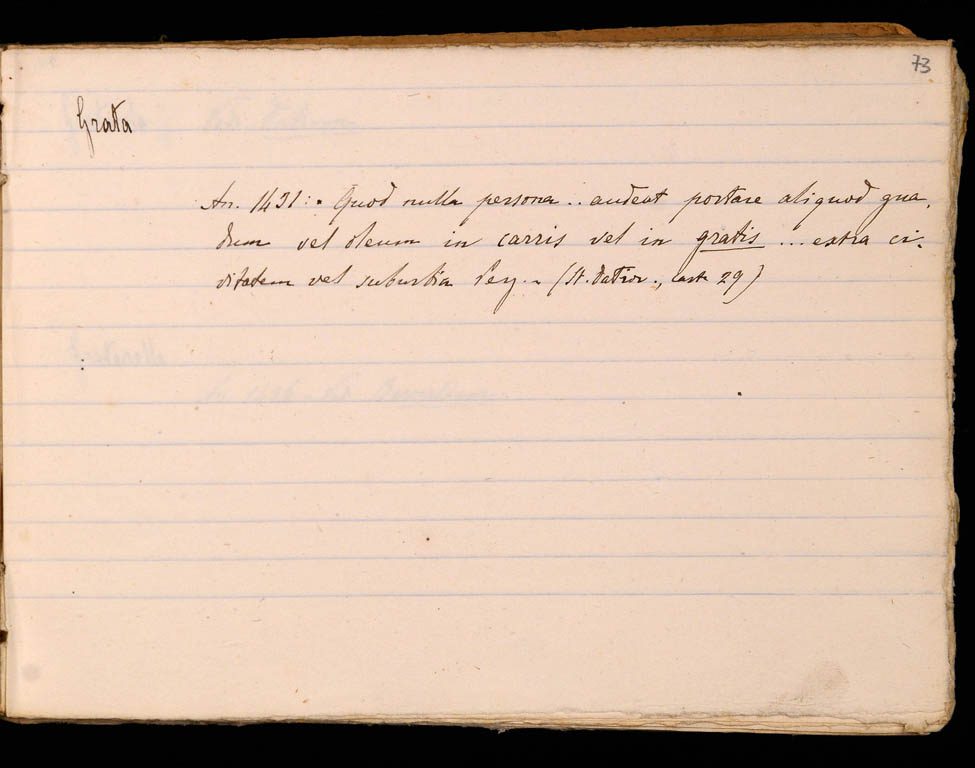 73
Grata
An. 1431: • Quod nulla persona .. audeat portare aliquod gua.
dum vel oleum in carris vel in gratis ... extra ci-
vitatem vel suburbia Pery. - (St. Datior., cart 29)